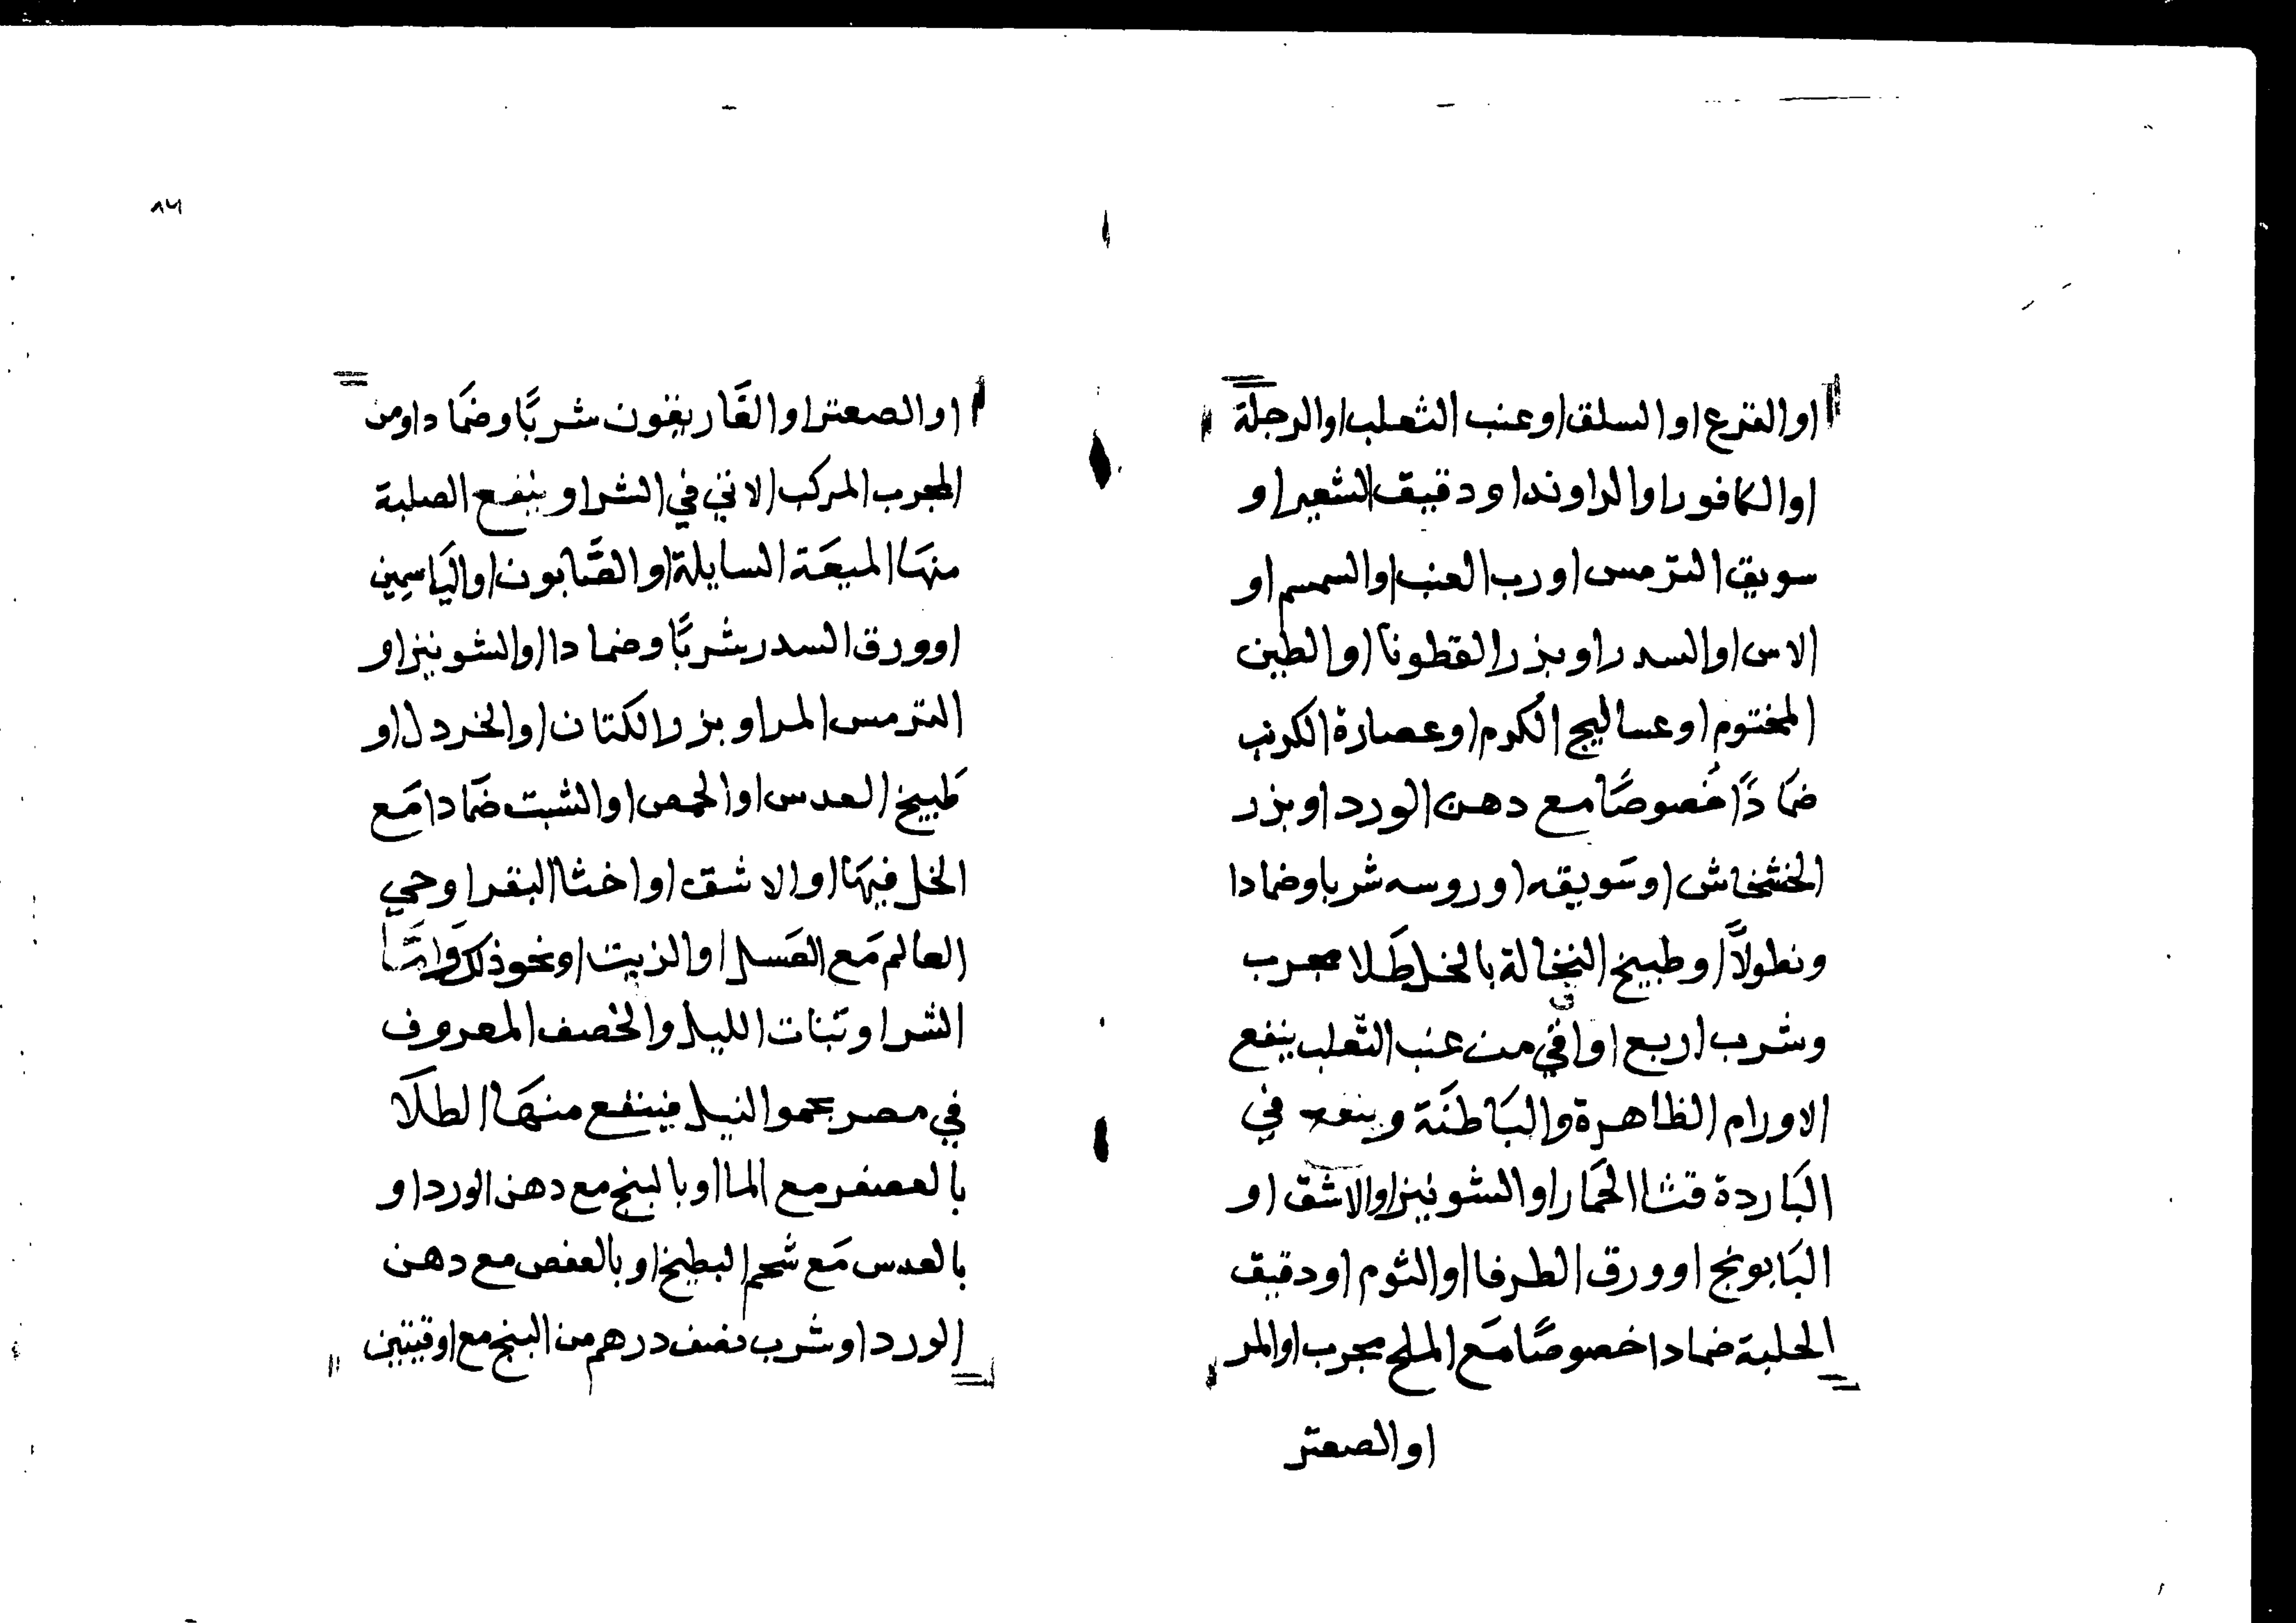 او القرع او السلق او عنب الثعلب او الرجلة
او الكافور او الراوند او دقيق الشعير او
سويق الترمس او رب العنب او السمسم او
الاس او السدر او بزر القطونا او الطين
المختوم او عساليج الكرم او عصارة الكرنب
ضمَادًا خُصوصًا مع دهن الورد او بزر
الخشخاش او سَويقه او روسه شربا وضمادا
ونطولاً او طبيخ النخالة بالخل طَلا مجرب
وشرب اربع اواقي من عنب الثعلب ينفع
الاورام الظاهرة والبَاطنَة وينفع في
البَاردة قثا الحمَار او الشونيز او الاشق او
البَابونج او ورق الطرفا او الثوم او دقيق
الحلبة ضمادا خصوصًا مَع الملح مجرب او المر
او الصعتر
٨٦
او الصعتر او الغَاريقون شربًا وضمَادا ومن
المجرب المركب الاتي في الشرا وينفع الصلبة
منهَا الميعَة السايلة او الصَّابون او اليَاسمِين
او ورق السدر شربًا وضمادا او الشونيز او
الترمس المر او بزر الكتان او الخردل او
طَبيخ العدس او الحمص او الشبت ضمَادا مَع
الخل فيهَا او الاشق او اخثا البقر او حي
العالم مَع العَسل او الزيت او نحو ذلك وَامَّا
الشرا وبنات الليل والخصف المعروف
في مصر بحمو النيل فينفع منهَا الطلَا
بالعصفر مع الما او بالبنج مع دهن الورد او
بالعدس مَع شحم البطيخ او بالعفص مع دهن
الورد او شرب نصف درهم من البنج مع اوقيتين